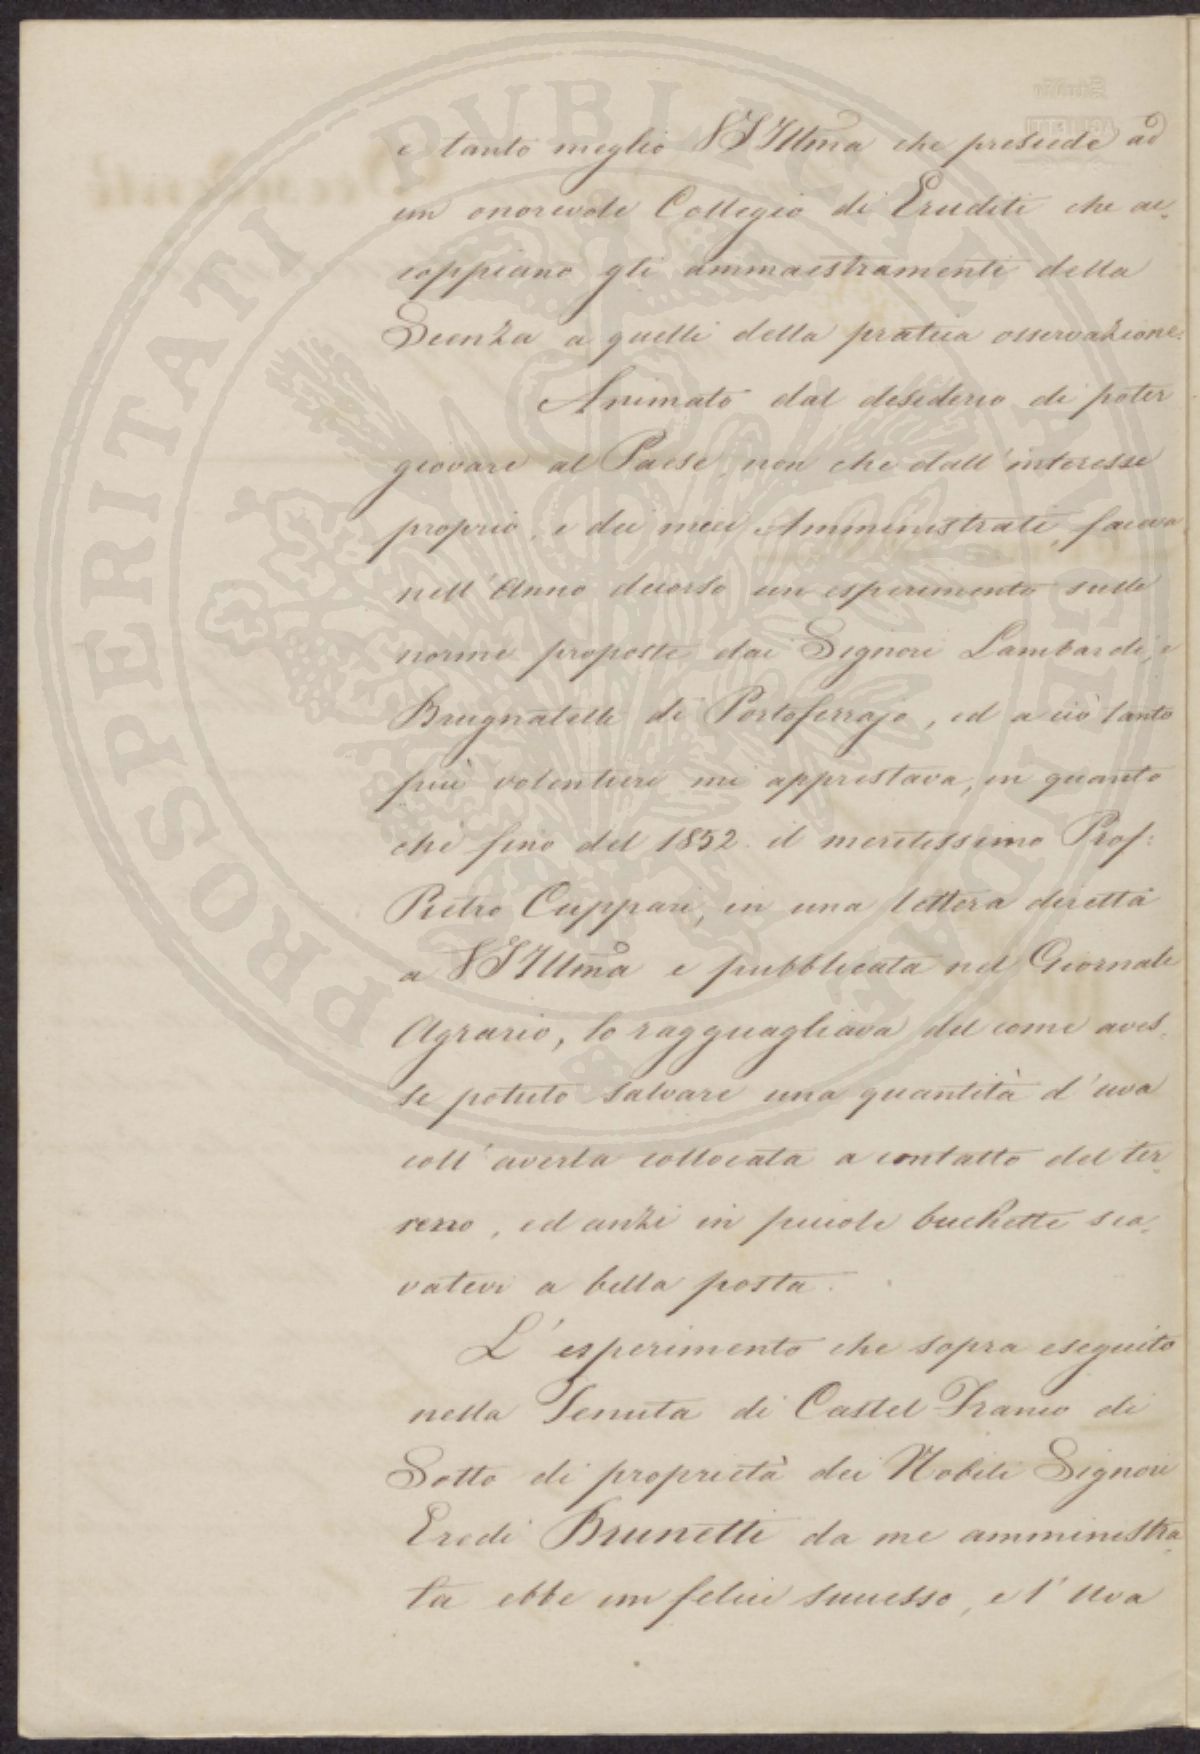 e tanto meglio VS Illma che presiede ad
un onorevole Collegio di Eruditi che ac-
coppiano gli ammaestramenti della
Scienza a quelli della pratica osservazione.
Animato dal desiderio di poter
giovare al Paese, non che dall'interesse
proprio, e dei miei Amministrati, faceva
nell'Anno decorso un esperimento sulle
norme proposte dai Signori Lambardi, e
Brugnatelli di Portoferrajo, ed a ciò tanto
più volentieri mi apprestava, in quanto
chè fino del 1852. il meritissimo Prof:
Pietro Cuppari, in una lettera diretta
a VS Illma e pubblicata nel Giornale
Agrario, lo ragguagliava del come aves-
se potuto salvare una quantità d'uva
coll'averla collocata a contatto del ter-
reno, ed anzi in piccole buchette sca-
vatevi a bella posta.
L'esperimento che sopra eseguito
nella Tenuta di Castel Franco di
Sotto di proprietà dei Nobili Signori
Eredi Brunetti da me amministra-
ta ebbe un felice successo, e l'Uva
PROSPERITATI PUBLICAE AUGENDAE